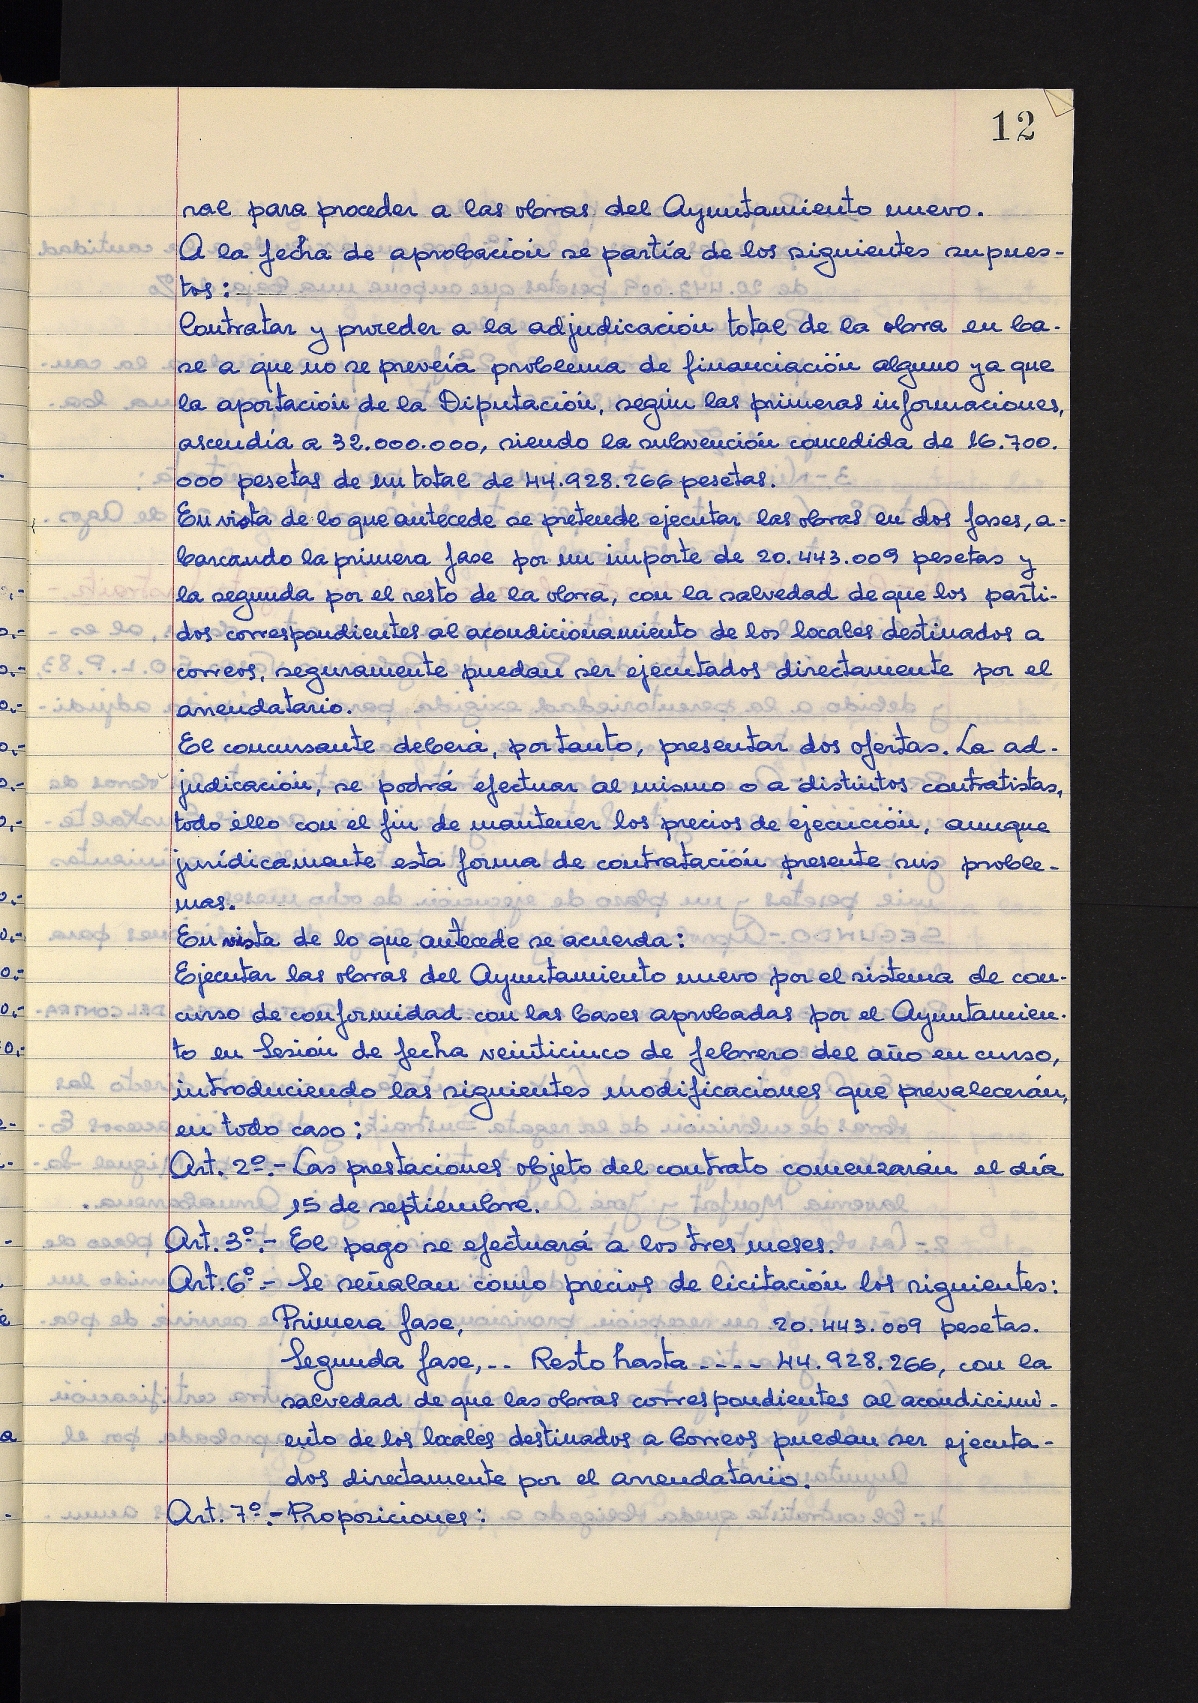 12
ral para proceder a las obras del Ayuntamiento nuevo.
A la fecha de aprobación se partía de los siguientes supues-
tos:
Contratar y proceder a la adjudicación total de la obra en ba-
se a que no se preveía problema de financiación alguno ya que
la aportación de la Diputación, según las primeras informaciones,
ascendía a 32.000.000, siendo la subvención concedida de 16.700.
000 pesetas de un total de 44.928.266 pesetas.
En vista de lo que antecede se pretende ejecutar las obras en dos fases, a-
barcando la primera fase por un importe de 20.443.009 pesetas y
la segunda por el resto de la obra, con la salvedad de que los parti-
dos correspondientes al acondicionamiento de los locales destinados a
correos, seguramente puedan ser ejecutados directamente por el
arrendatario.
El concursante deberá, por tanto, presentar dos ofertas. La ad-
judicación, se podrá efectuar al mismo o a distintos contratistas,
todo ello con el fin de mantener los precios de ejecución, aunque
jurídicamente esta forma de contratación presente sus proble-
mas.
En vista de lo que antecede se acuerda:
Ejecutar las obras del Ayuntamiento nuevo por el sistema de con-
curso de conformidad con las bases aprobadas por el Ayuntamien-
to en Sesión de fecha veinticinco de febrero del año en curso,
introduciendo las siguientes modificaciones que prevalecerán,
en todo caso:
Art. 2º.- Las prestaciones objeto del contrato comenzarán el día
15 de septiembre.
Art. 3º.- El pago se efectuará a los tres meses.
Art. 6º.- Se señalan como precios de licitación los siguientes:
Primera fase, 20.443.009 pesetas.
Segunda fase,-- Resto hasta ---- 44.928.266, con la
salvedad de que las obras correspondientes al acondicimi-
ento de los locales destinados a Correos puedan ser ejecuta-
dos directamente por el arrendatario.
Art. 7º.- Proposiciones: